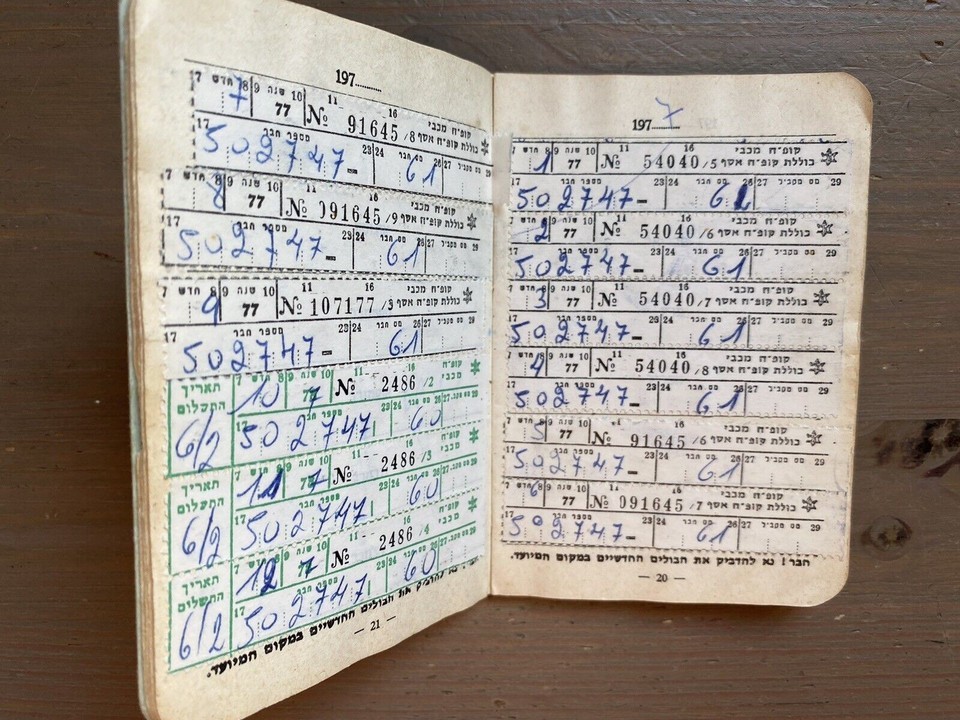 1977
7 8 9 10 11 16 קופ״ח מכבי
1 77 № 54040/5 כוללת קופ״ח אסף
17 מספר חבר 23 24 מס חבר 26 27 29
502747- 61
11 16 קופ״ח מכבי
2 77 № 54040/6 כוללת קופ״ח אסף
17 מספר חבר 23 24 מס חבר 26 27 29
502747- 61
11 16 קופ״ח מכבי
3 77 № 54040/7 כוללת קופ״ח אסף
17 מספר חבר 23 24 מס חבר 26 27 29
502747- 61
11 16 קופ״ח מכבי
4 77 № 54040/8 כוללת קופ״ח אסף
17 מספר חבר 23 24 מס חבר 26 27 29
502747- 61
קופ״ח מכבי
5 77 № 91645/6 כוללת קופ״ח אסף
17 מספר חבר 23 24 מס חבר 26 27 29
502747- 61
11 16 קופ״ח מכבי
6 77 № 091645/7 כוללת קופ״ח אסף
17 מספר חבר 23 24 מס חבר 26 27 29
502747- 61
חבר! נא להדביק את הבולים החדשיים במקום המיועד.
— 20 —
197
7 חדש 8 9 שנה 10 11 16 קופ״ח מכבי
7 77 № 91645/8 כוללת קופ״ח אסף
17 מספר חבר 23 24 מס חבר 26 27 29
502747- 61
7 חדש 8 9 שנה 10 11 16 קופ״ח מכבי
8 77 № 091645/9 כוללת קופ״ח אסף
17 מספר חבר 23 24 מס חבר 26 27 29
502747- 61
7 חדש 8 9 שנה 10 11 16 קופ״ח מכבי
9 77 № 107177/3 כוללת קופ״ח אסף
17 מספר חבר 23 24 מס חבר 26 27 29
502747- 61
תאריך התשלום 7 חדש 8 9 שנה 10 11 16 קופ״ח מכבי
10 77 № 2486/2
17 מספר חבר 23 24 מס חבר 26
6/2 502747 60
תאריך התשלום 7 חדש 8 9 שנה 10 11 16 קופ״ח מכבי
11 77 № 2486/3
17 מספר חבר 23 24 מס חבר 26
6/2 502747 60
תאריך התשלום 7 חדש 8 9 שנה 10 11 16 קופ״ח מכבי
12 77 № 2486/4
17 מספר חבר 23 24 מס חבר 26
6/2 502747 60
נא להדביק את הבולים החדשיים במקום המיועד.
— 21 —